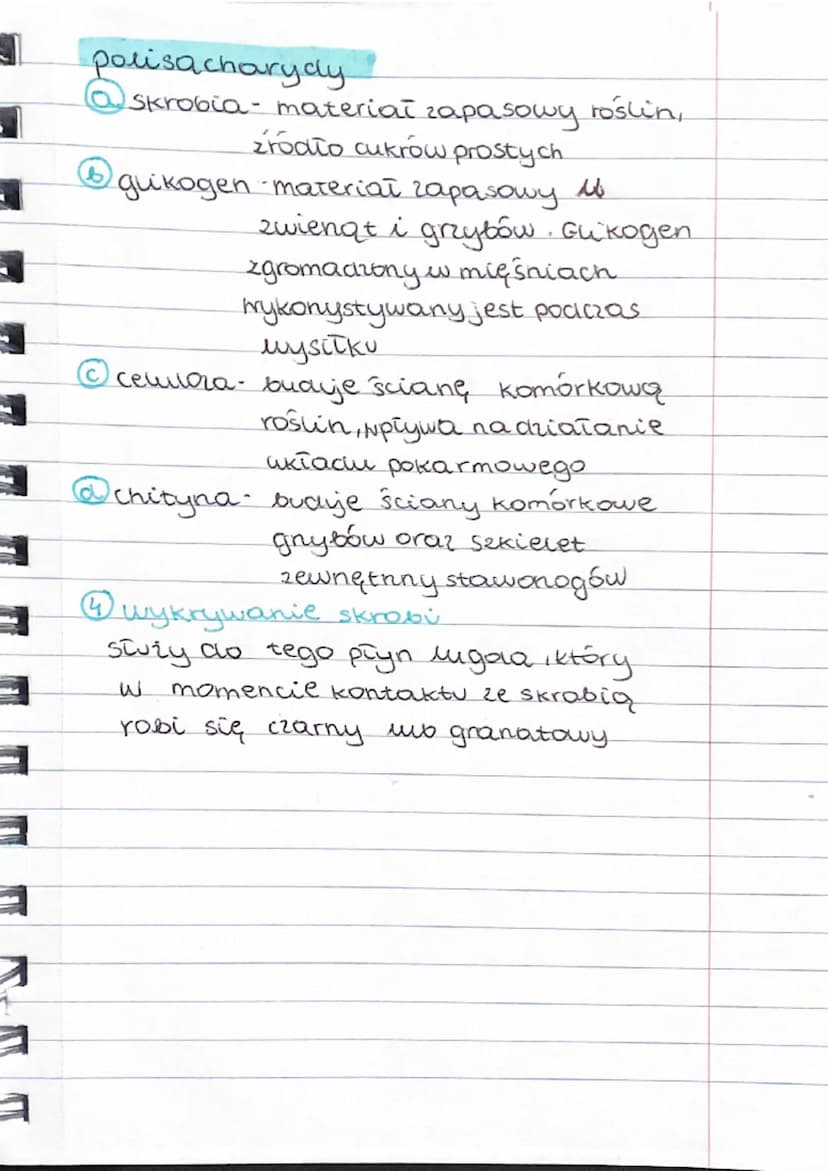 polisacharydy
a skrobia - materiał zapasowy roślin,
źródło cukrów prostych
b glikogen - materiał zapasowy u
zwierząt i grzybów. Glikogen
zgromadzony w mięśniach
wykorzystywany jest podczas
wysiłku
c celuloza - buduje ścianę komórkową
roślin, wpływa na działanie
układu pokarmowego
d chityna - buduje ściany komórkowe
grzybów oraz szkielet
zewnętrzny stawonogów
4 wykrywanie skrobi
służy do tego płyn lugola, który
w momencie kontaktu ze skrobią
robi się czarny lub granatowy